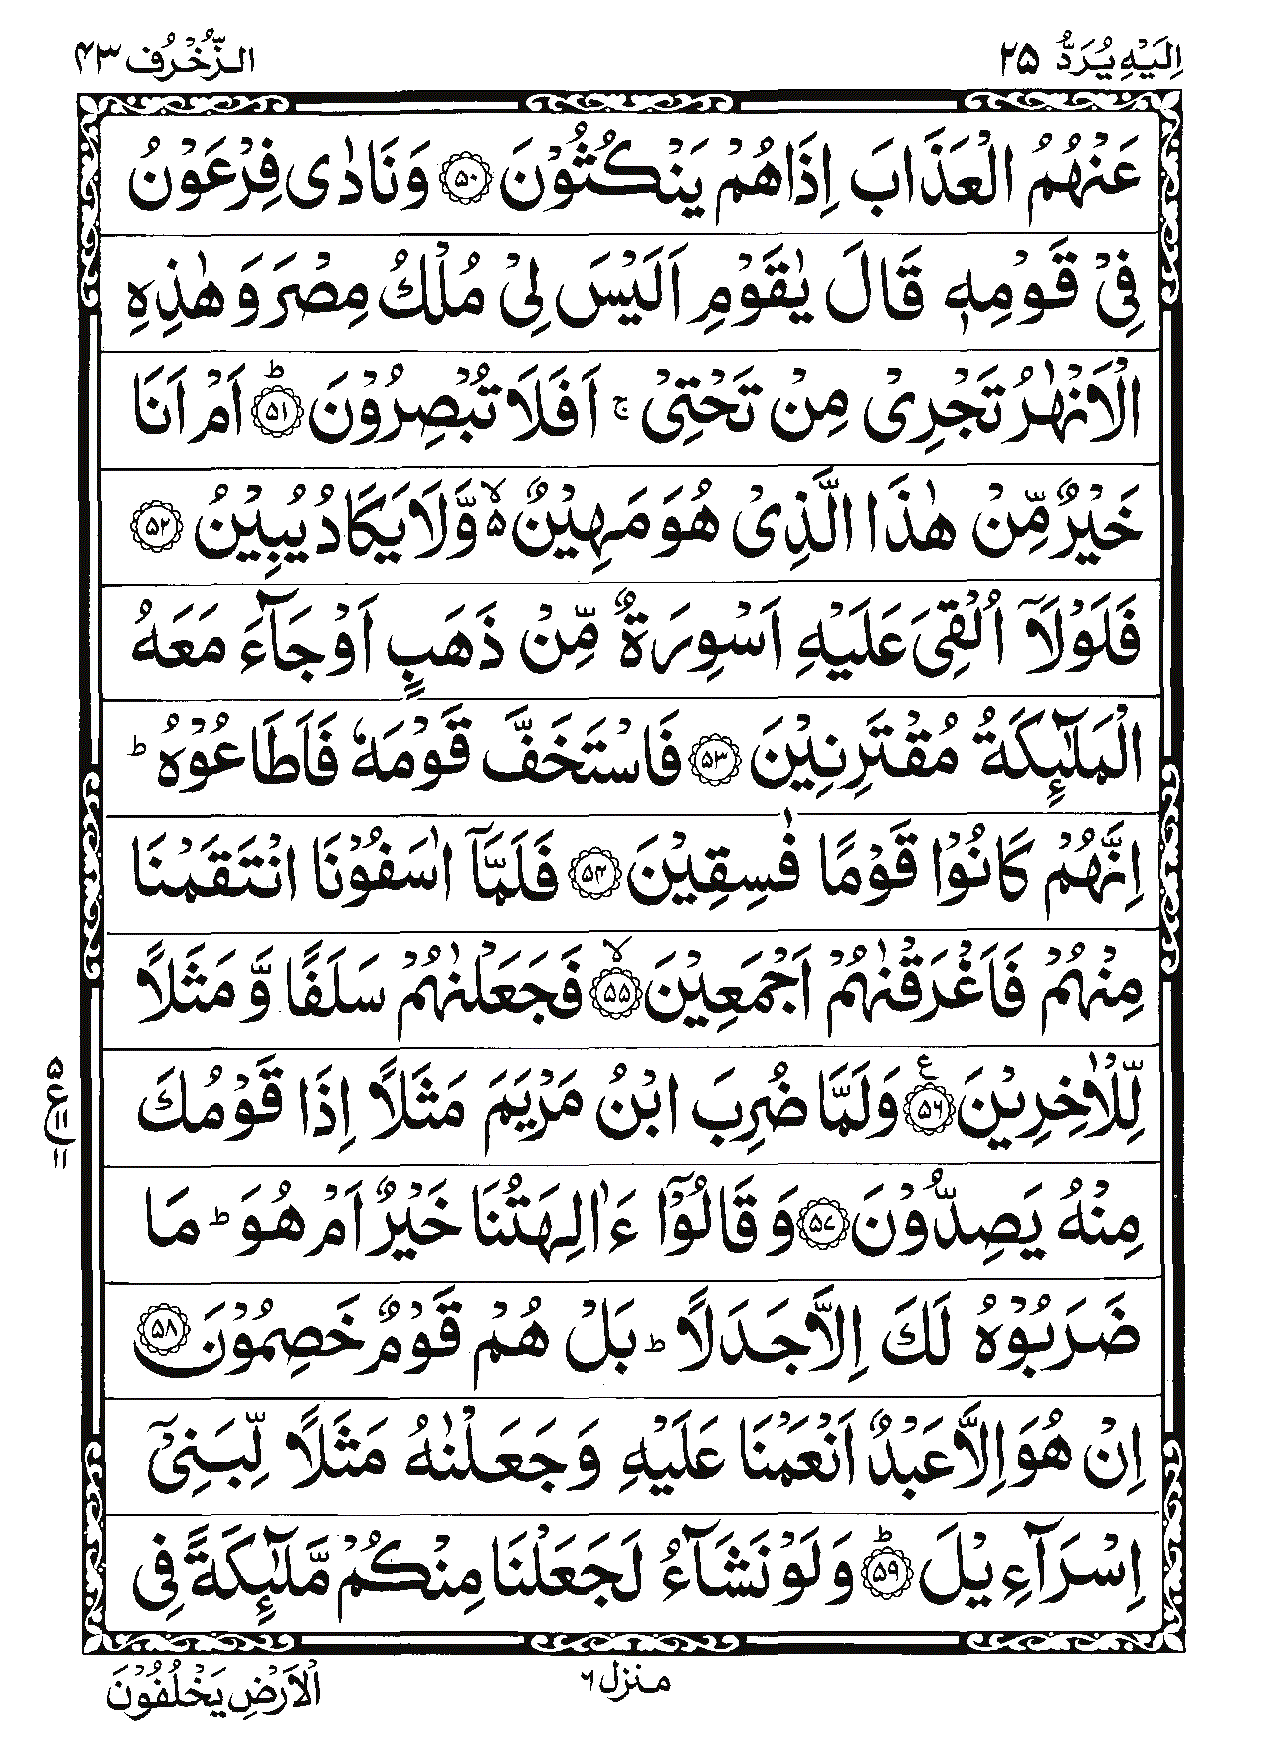 اِلَيْهِ يُرَدُّ ٢٥ الزُّخْرُف ٤٣
عَنْهُمُ الْعَذَابَ اِذَا هُمْ يَنْكُثُوْنَ ۝٥٠ وَنَادٰى فِرْعَوْنُ
فِىْ قَوْمِهٖ قَالَ يٰقَوْمِ اَلَيْسَ لِىْ مُلْكُ مِصْرَ وَهٰذِهِ
الْاَنْهٰرُ تَجْرِىْ مِنْ تَحْتِىْ ۚ اَفَلَا تُبْصِرُوْنَ ۝٥١ؕ اَمْ اَنَا
خَيْرٌ مِّنْ هٰذَا الَّذِىْ هُوَ مَهِيْنٌ ۙ۬ وَّلَا يَكَادُ يُبِيْنُ ۝٥٢
فَلَوْلَاۤ اُلْقِىَ عَلَيْهِ اَسْوِرَةٌ مِّنْ ذَهَبٍ اَوْ جَآءَ مَعَهُ
الْمَلٰٓئِكَةُ مُقْتَرِنِيْنَ ۝٥٣ فَاسْتَخَفَّ قَوْمَهٗ فَاَطَاعُوْهُ ؕ
اِنَّهُمْ كَانُوْا قَوْمًا فٰسِقِيْنَ ۝٥٤ فَلَمَّاۤ اٰسَفُوْنَا انْتَقَمْنَا
مِنْهُمْ فَاَغْرَقْنٰهُمْ اَجْمَعِيْنَ ۝٥٥ۙ فَجَعَلْنٰهُمْ سَلَفًا وَّمَثَلًا
لِّلْاٰخِرِيْنَ ۝٥٦ ع وَلَمَّا ضُرِبَ ابْنُ مَرْيَمَ مَثَلًا اِذَا قَوْمُكَ
٥ ع ١١ ١١
مِنْهُ يَصِدُّوْنَ ۝٥٧ وَقَالُوْٓا ءَاٰلِهَتُنَا خَيْرٌ اَمْ هُوَ ؕ مَا
ضَرَبُوْهُ لَكَ اِلَّا جَدَلًا ؕ بَلْ هُمْ قَوْمٌ خَصِمُوْنَ ۝٥٨
اِنْ هُوَ اِلَّا عَبْدٌ اَنْعَمْنَا عَلَيْهِ وَجَعَلْنٰهُ مَثَلًا لِّبَنِىْۤ
اِسْرَآءِيْلَ ۝٥٩ؕ وَلَوْ نَشَآءُ لَجَعَلْنَا مِنْكُمْ مَّلٰٓئِكَةً فِى
منزل ٦
الْاَرْضِ يَخْلُفُوْنَ